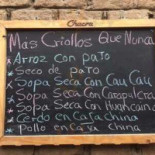 Mas Criollos Que Nunca
* Arroz con pato
* Seco de pato
* Sopa Seca con Cau Cau
* Sopa Seca con Carapulcra
* Sopa Seca con Huahcaina
* Cerdo en Caja china
* Pollo en Caja China